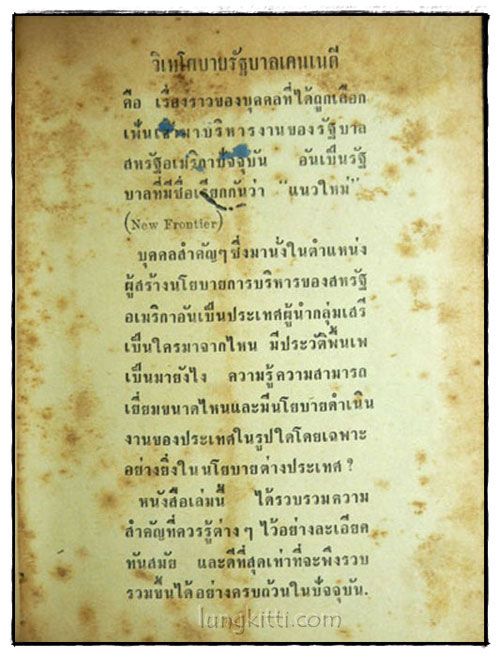 วิเทโศบายรัฐบาลเคนเนดี
คือ เรื่องราวของบุคคลที่ได้ถูกเลือก
เฟ้นเข้ามาบริหารงานของรัฐบาล
สหรัฐอเมริกาปัจจุบัน อันเป็นรัฐ
บาลที่มีชื่อเรียกกันว่า “แนวใหม่”
(New Frontier)
บุคคลสำคัญๆ ซึ่งมานั่งในตำแหน่ง
ผู้สร้างนโยบายการบริหารของสหรัฐ
อเมริกาอันเป็นประเทศผู้นำกลุ่มเสรี
เป็นใครมาจากไหน มีประวัติพื้นเพ
เป็นมายังไง ความรู้ความสามารถ
เยี่ยมขนาดไหนและมีนโยบายดำเนิน
งานของประเทศในรูปใดโดยเฉพาะ
อย่างยิ่งในนโยบายต่างประเทศ ?
หนังสือเล่มนี้ ได้รวบรวมความ
สำคัญที่ควรรู้ต่าง ๆ ไว้อย่างละเอียด
ทันสมัย และดีที่สุดเท่าที่จะพึงรวบ
รวมขึ้นได้ อย่างครบถ้วนในปัจจุบัน.
lungkitti.com